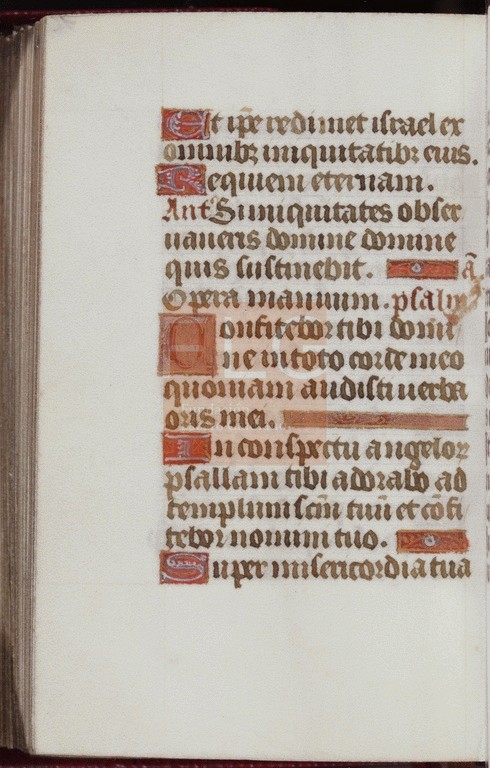 Et ip̄e redimet israel ex
omnibꝫ iniquitatibꝫ eius.
Requiem eternam.
Ant̄ Si iniquitates obser
uaueris domine domine
quis sustinebit. ā
Opera manuum. psalm̄
Confitebor tibi domi
ne in toto corde meo
quoniam audisti uerba
oris mei.
In conspectu angeloꝝ
psallam tibi adorabo ad
templum scm̄ tuū et cōfi
tebor nomini tuo.
Super misericordia tua